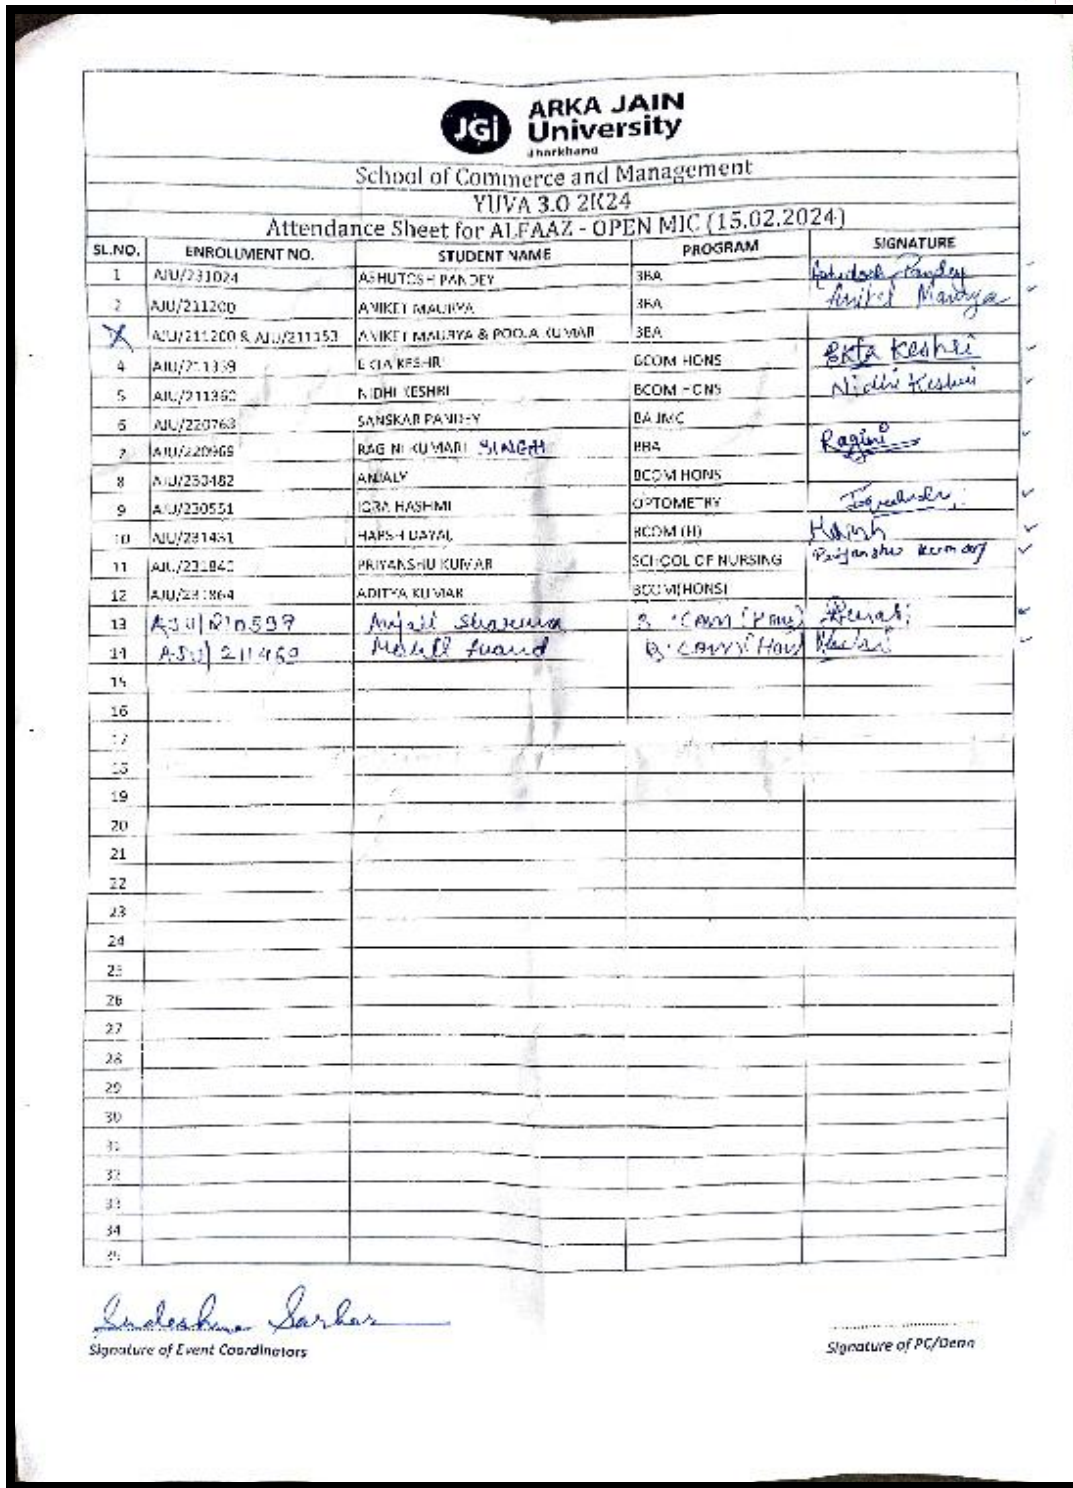 JGi
ARKA JAIN
University
Jharkhand
School of Commerce and Management
YUVA 3.0 2K24
Attendance Sheet for ALFAAZ - OPEN MIC (15.02.2024)
SL.NO. ENROLLMENT NO. STUDENT NAME PROGRAM SIGNATURE
1 AJU/231024 ASHUTOSH PANDEY BBA Ashutosh Pandey
2 AJU/211200 ANIKET MAURYA BBA Aniket Maurya
AJU/211200 & AJU/211153 ANIKET MAURYA & POOJA KUMAR BBA
4 AJU/211359 EKTA KESHRI BCOM HONS Ekta Keshri
5 AJU/211360 NIDHI KESHRI BCOM HONS Nidhi Keshri
6 AJU/220763 SANSKAR PANDEY BAJMC
7 AJU/220969 RAGINI KUMARI SINGH BBA Ragini
8 AJU/230482 ANJALY BCOM HONS
9 AJU/230551 IQRA HASHMI OPTOMETRY
10 AJU/231431 HARSH DAYAL BCOM (H) Harsh
11 AJU/231840 PRIYANSHU KUMAR SCHOOL OF NURSING Priyanshu Kumar
12 AJU/231864 ADITYA KUMAR BCOM(HONS)
13 Anjali Sharma
14 AJU/211460
15
16
17
18
19
20
21
22
23
24
25
26
27
28
29
30
31
32
33
34
35
Sudeshna Sarkar
Signature of Event Coordinators
Signature of PC/Dean